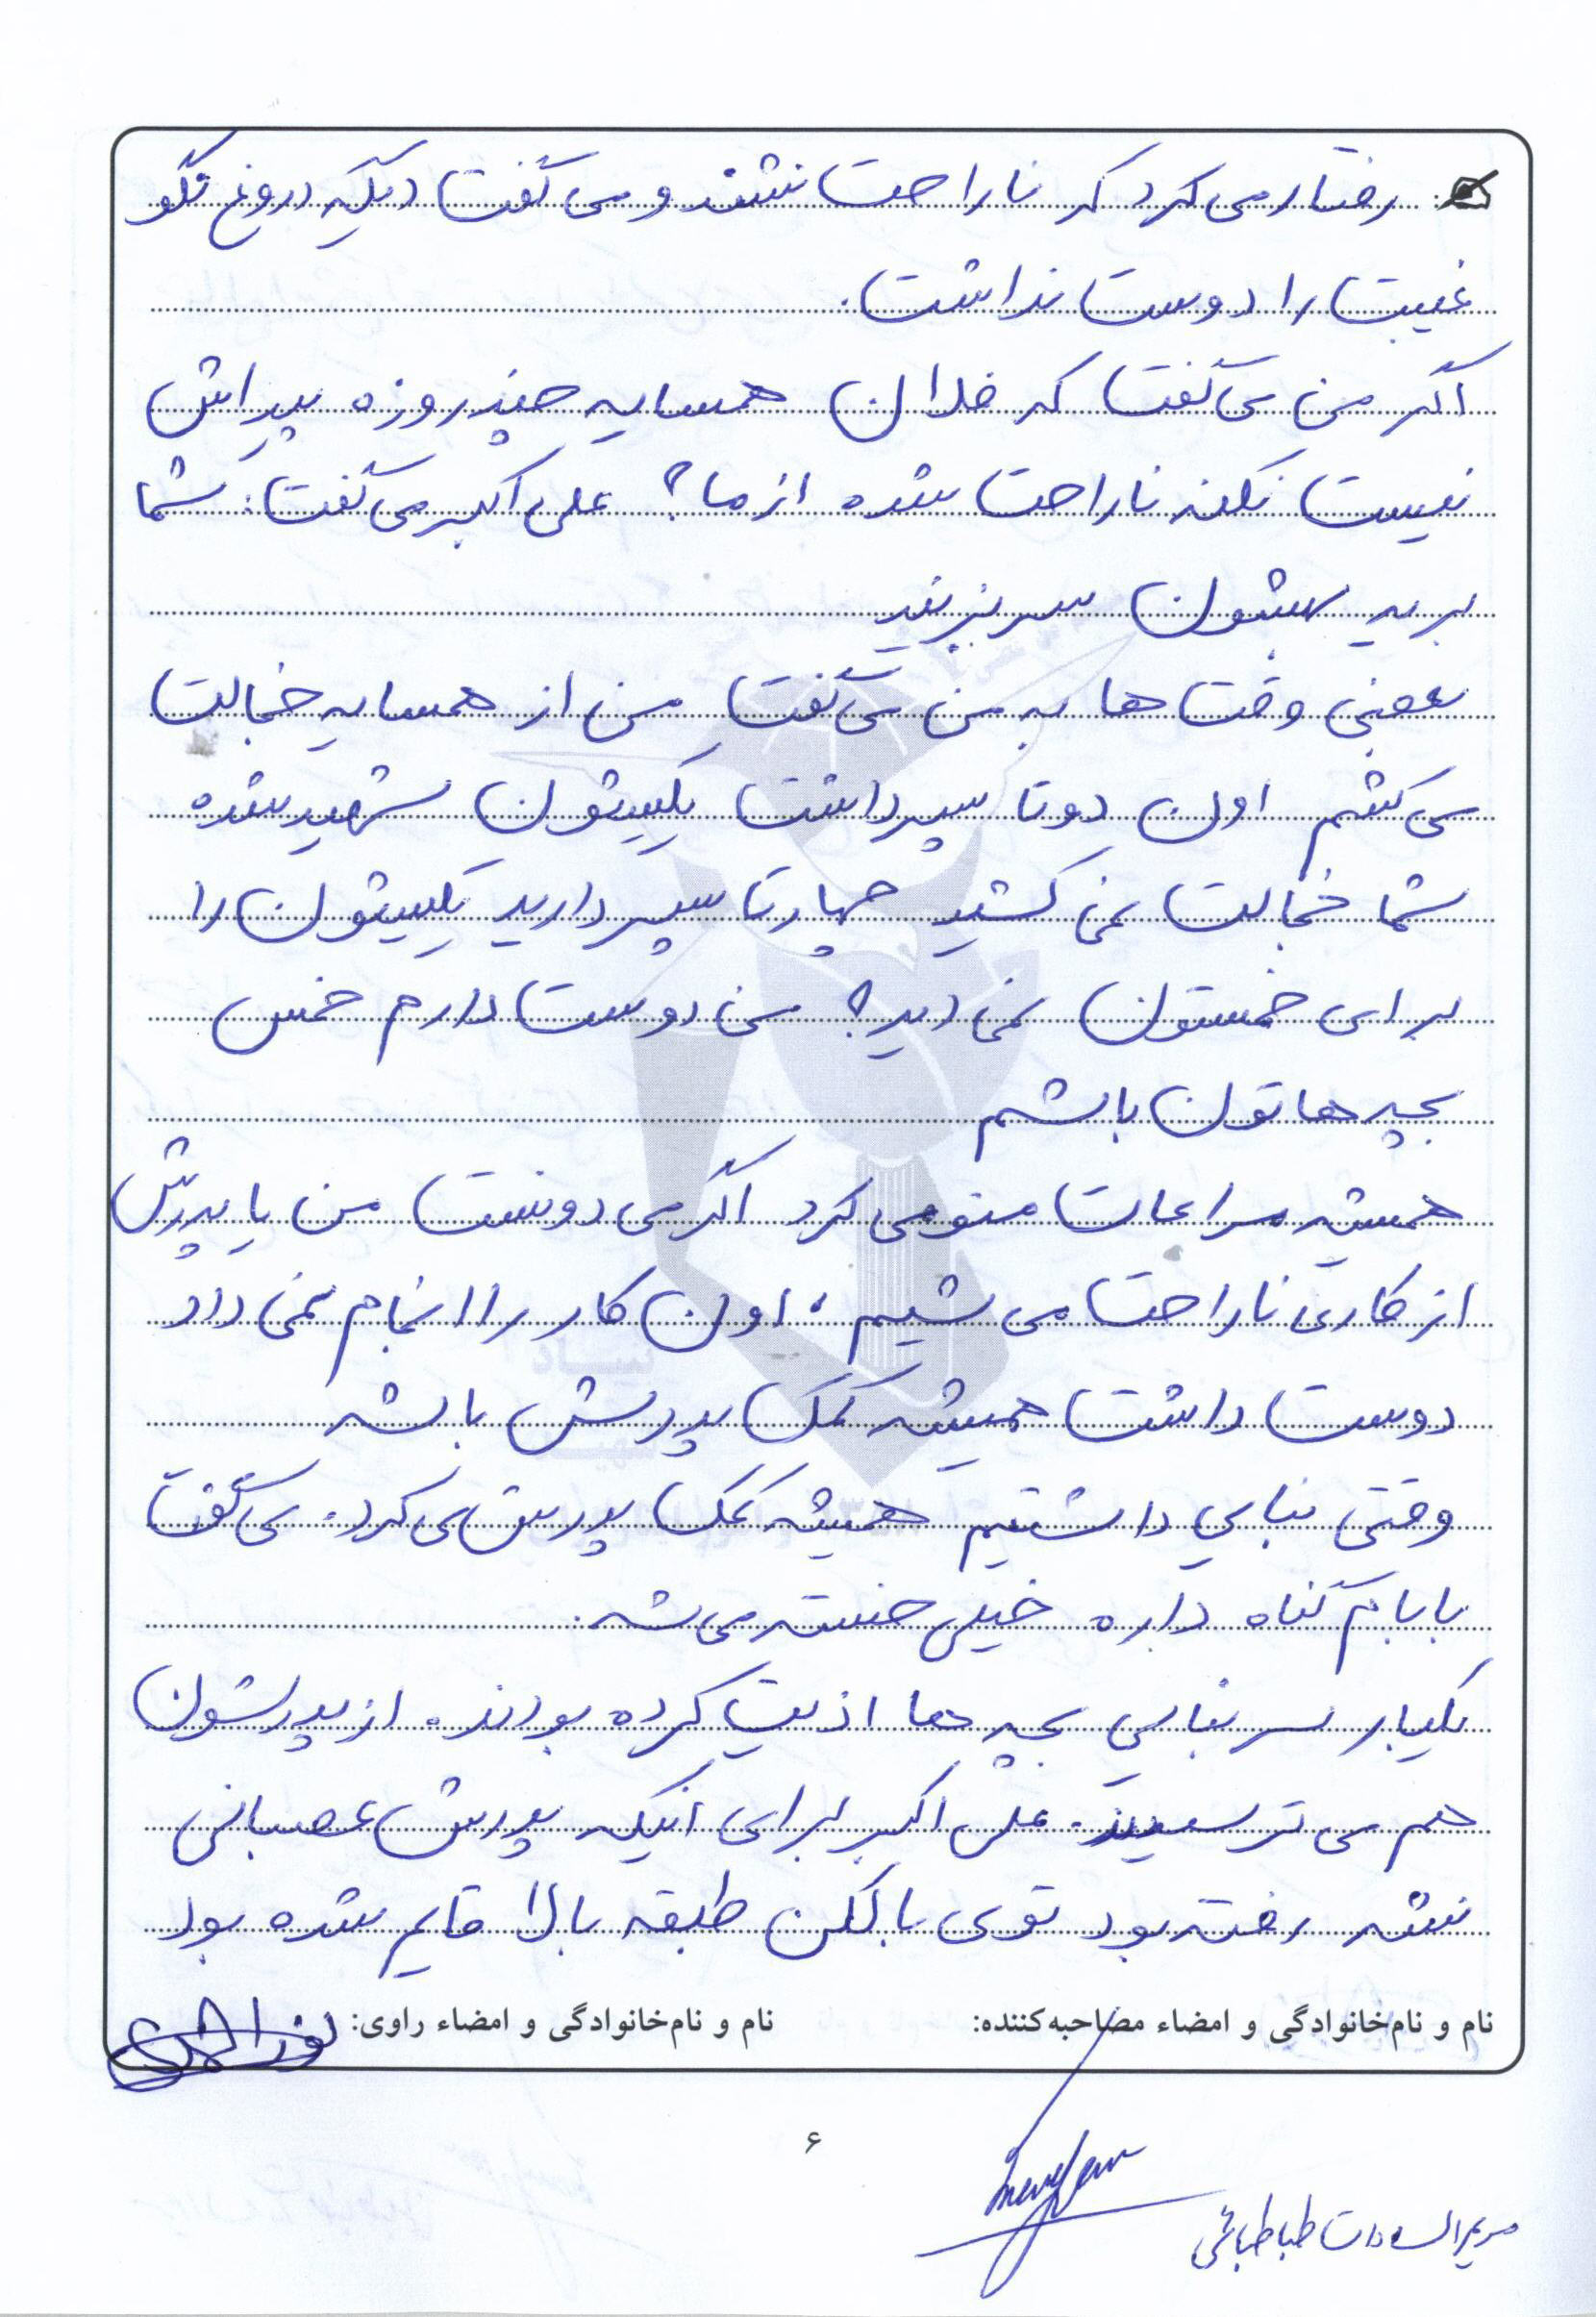 رفتار می کرد که ناراحت نشند و می گفت دیگه دروغ نگو
غیبت را دوست نداشت.
اگر من می گفت که فلان همسایه چند روزه پیداش
نیست نکنه ناراحت شده از ما؟ علی اکبر می گفت: شما
برید بهشون سر بزنید
بعضی وقت ها به من می گفت من از همسایه خجالت
می کشم اون دوتا پسر داشت یکیشون شهید شده
شما خجالت نمی کشید چهارتا پسر دارید یکیشون را
برای خمستون نمی دید؟ من دوست دارم خمس
بچه هاتون باشم
همیشه مراعات منو می کرد اگر می دونست من یا پدرش
از کاری ناراحت می شیم، اون کار را انجام نمی داد
دوست داشت همیشه کمک پدرش باشه
وقتی بنایی داشتیم همیشه کمک پدرش می کرد. می گفت
بابام گناه داره خیلی خسته می شه.
یکبار سر بنایی بچه ها اذیت کرده بودند. از پدرشون
هم می ترسیدند. علی اکبر برای اینکه پدرش عصبانی
نشه رفته بود توی بالکن طبقه بالا قایم شده بود
نام و نام‌خانوادگی و امضاء مصاحبه‌کننده:
نام و نام‌خانوادگی و امضاء راوی:
۶
مریم السادات طباطبائی